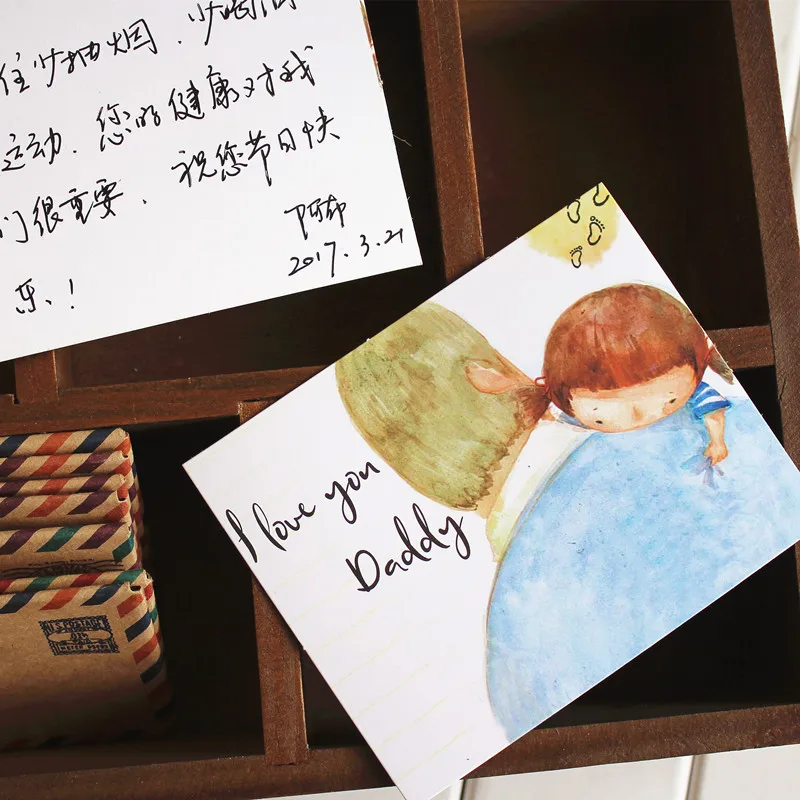 住少抽烟、少喝酒
运动.您的健康对我
们很重要、祝您节日快
乐、!
阿布
2017.3.21
I love you
Daddy
U.S.POSTAGE